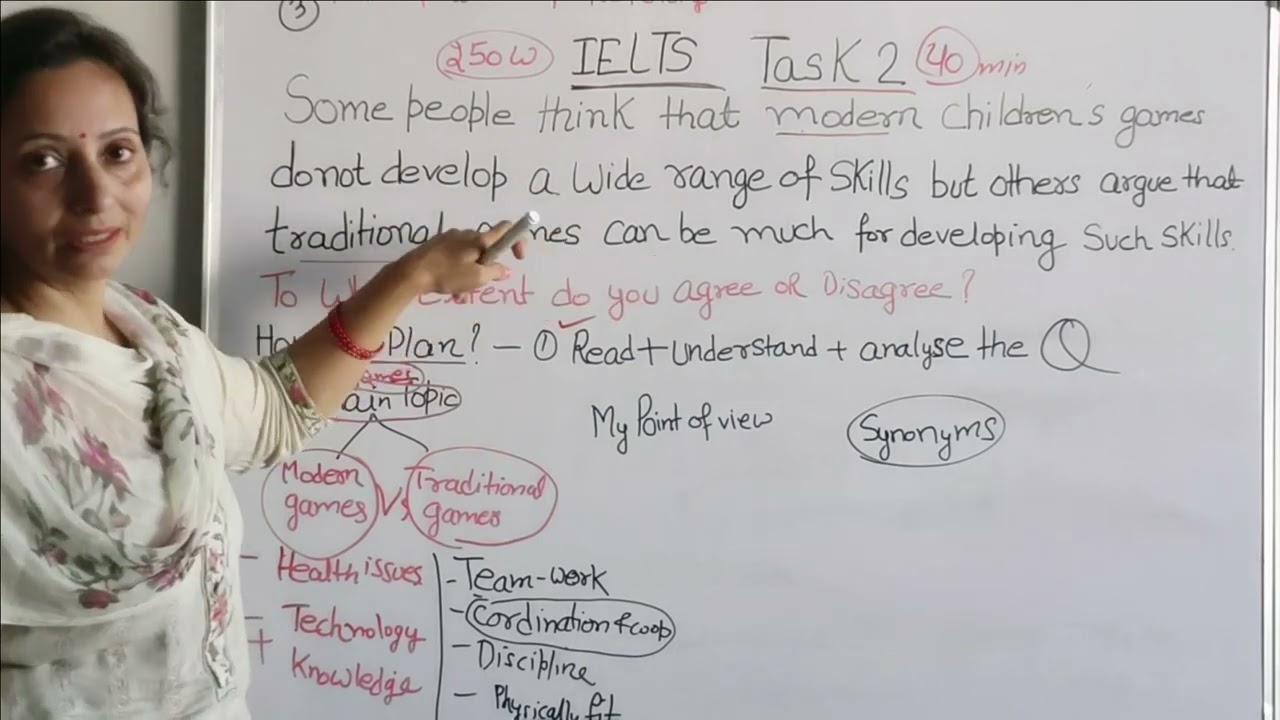 3
250W IELTS Task 2 40 min
Some people think that modern children's games
donot develop a wide range of skills but others argue that
traditional games can be much for developing such skills.
To extent do you agree or Disagree?
Plan? - ① Read + understand + analyse the Q
games
ain Topic
My Point of view
Synonyms
Modern games Vs Traditional games
- Health issues
- Team-work
+ Technology Knowledge
- Cordination & coop
- Discipline
- Physically fit